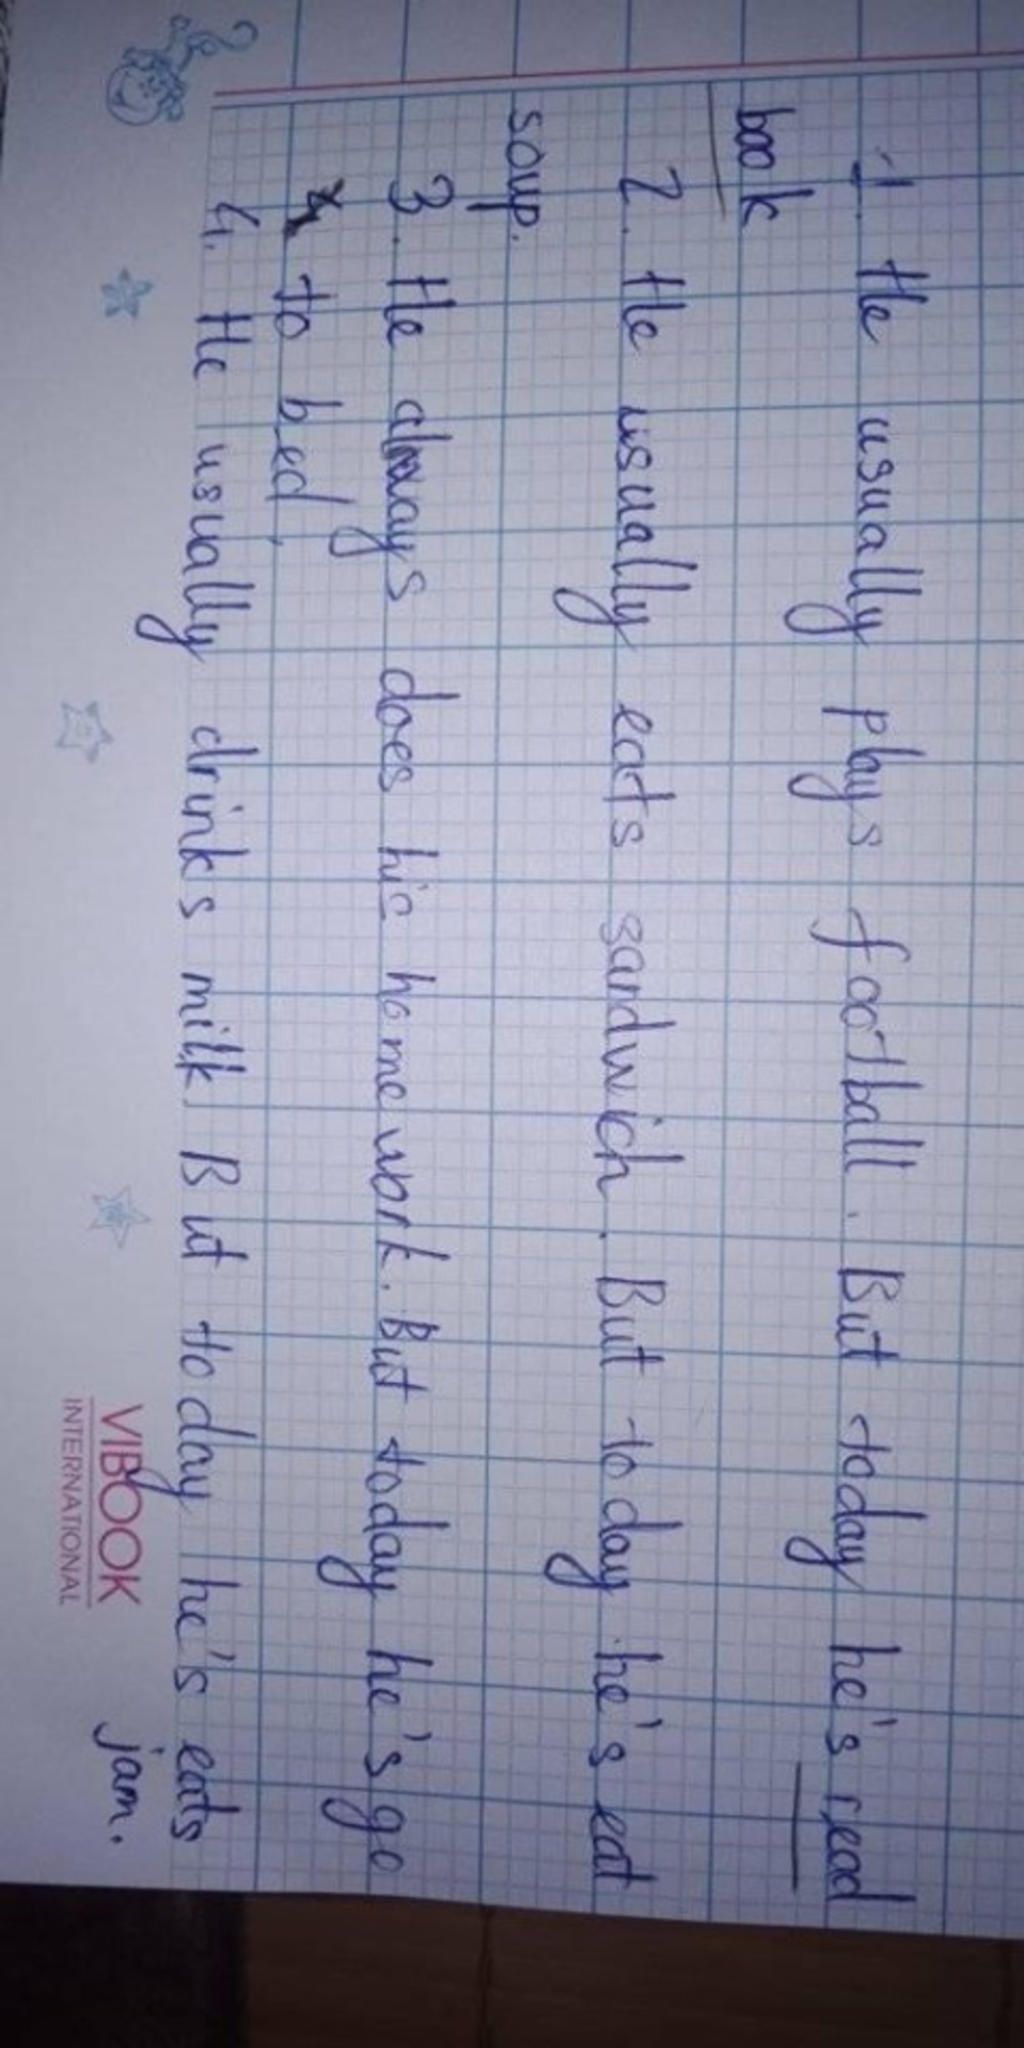 1. He usually plays football. But today he's read
book
2. He usually eats sandwich. But today he's eat
soup.
3. He always does his homework. But today he's go
to bed.
4. He usually drinks milk. But today he's eats
jam.
VIBOOK
INTERNATIONAL